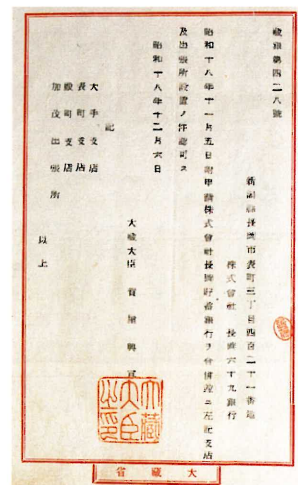 藏銀第四二八號
新潟縣長岡市表町三丁目四百二十一番地
株式會社 長岡六十九銀行
昭和十八年十一月五日附申請株式會社長岡貯蓄銀行ヲ合併竝ニ左記支店
及出張所設置ノ件認可ス
昭和十八年十二月六日
大藏大臣 賀屋興宣
記
大手支店
表町支店
殿町支店
加茂出張所
以上
大藏大臣之印
大藏省